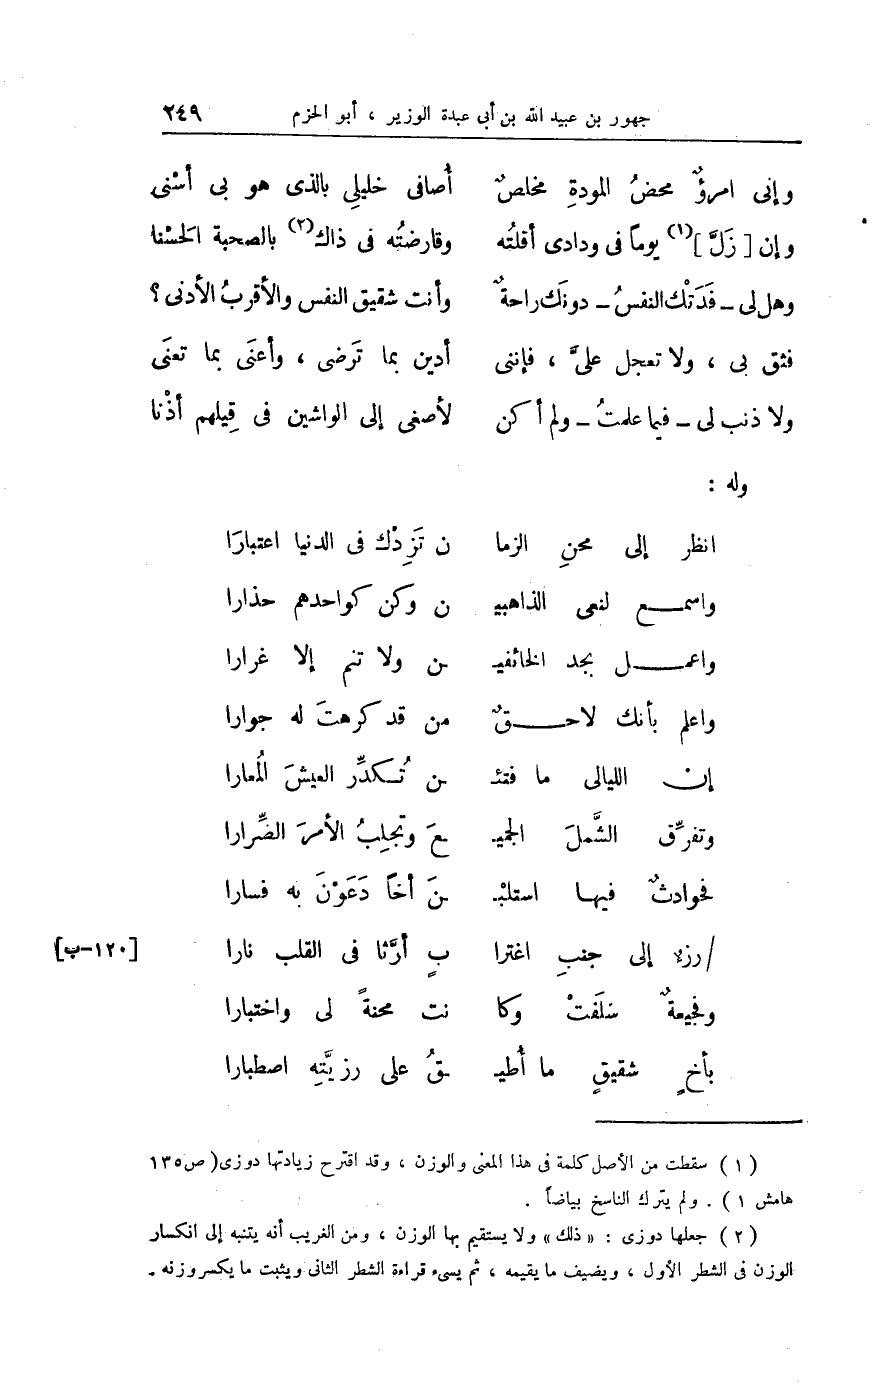 جهور بن عبيد الله بن أبى عبدة الوزير ، أبو الحزم ٢٤٩
وإنى امرؤٌ محضُ المودةِ مخلصٌ أُصافى خليلي بالذى هو بى أسْنى
وإن [ زَلَّ ](١) يوماً فى ودادى أقلتُه وقارضتُه فى ذاك(٢) بالصحبة الحسْنا
وهل لى ـ فَدَتْك النفسُ ـ دونَك راحةٌ وأنت شقيق النفس والأقربُ الأدنى ؟
فثق بى ، ولا تعجل علىَّ ، فإننى أدين بما تَرضى ، وأعنَى بما تعنَى
ولا ذنب لى ـ فيما علمتُ ـ ولم أكن لأصغى إلى الواشين فى قِيلهم أذْنا
وله :
انظر إلى محنِ الزما ن تَزِدْك فى الدنيا اعتبارَا
واسمـــع لنعى الذاهبيـ ن وكن كواحدهم حذارا
واعمـــل بجد الخائفيـ ـن ولا تنم إلا غرارا
واعلم بأنك لاحـــقٌ من قد كرهتَ له جوارا
إن الليالى ما فتئـ ـن تُكدِّر العيشَ المُعارا
وتفرِّق الشَّملَ الجميـ ـعَ وتجلِبُ الأمرَ الضِّرارا
فحوادثٌ فيها استلبْـ ـنَ أخاً دَعَوْنَ به فسارا
/ رزء إلى جنبِ اغترا بٍ أرَّثا فى القلب نارا [١٢٠-ب]
وفجيعةٌ سَلَفَتْ وكا نت محنةً لى واختبارا
بأخٍ شقيقٍ ما أُطيـ ـقُ على رزيَّتِه اصطبارا
( ١ ) سقطت من الأصل كلمة فى هذا المعنى والوزن ، وقد اقترح زيادتها دوزى ( ص ١٣٥
هامش ١ ) . ولم يترك الناسخ بياضاً .
( ٢ ) جعلها دوزى : « ذلك » ولا يستقيم بها الوزن ، ومن الغريب أنه يتنبه إلى انكسار
الوزن فى الشطر الأول ، ويضيف ما يقيمه ، ثم يسىء قراءة الشطر الثانى ويثبت ما يكسر وزنه .